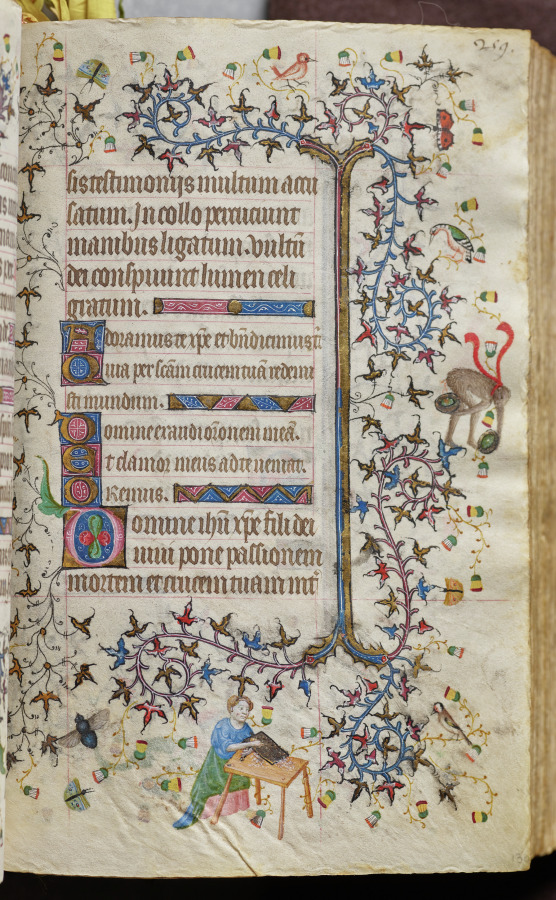 259.
sis testimonijs multum accu
satum. In collo percucunt
manibus ligatum. Vultū
dei conspuunt lumen celi
gratum.
Adoramus te xp̄e et bn̄dicimus t̄
Quia per scām crucem tuā redemi
sti mundum.
Domine exaudi or̄onem meā.
Et clamor meus ad te veniat.
Oremus.
Domine ihū xp̄e fili dei
viui pone passionem
mortem et crucem tuam int̄